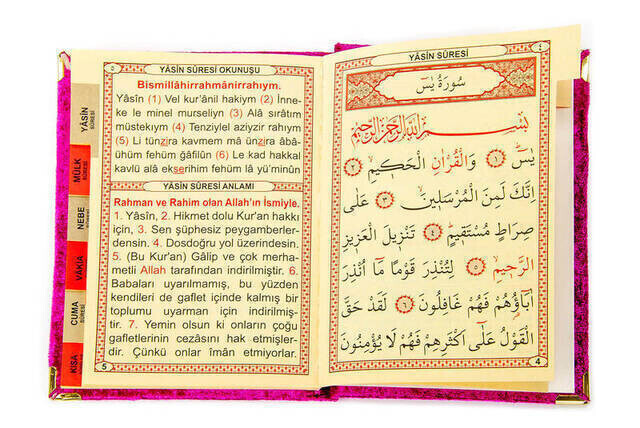 YÂSİN SÛRESİ
٤
سُورَةُ يٰسٓ
بِسْمِ اللّٰهِ الرَّحْمٰنِ الرَّحِيمِ
يٰسٓ ﴿١﴾ وَالْقُرْاٰنِ الْحَكِيمِ ﴿٢﴾
اِنَّكَ لَمِنَ الْمُرْسَلِينَ ﴿٣﴾ عَلٰى
صِرَاطٍ مُسْتَقِيمٍ ﴿٤﴾ تَنْزِيلَ الْعَزِيزِ
الرَّحِيمِ ﴿٥﴾ لِتُنْذِرَ قَوْمًا مَٓا اُنْذِرَ
اٰبَٓاؤُ۬هُمْ فَهُمْ غَافِلُونَ ﴿٦﴾ لَقَدْ حَقَّ
الْقَوْلُ عَلٰٓى اَكْثَرِهِمْ فَهُمْ لَا يُؤْمِنُونَ
4
٥
YÂSİN SÛRESİ OKUNUŞU
Bismillâhirrahmânirrahıym.
Yâsîn (1) Vel kur'ânil hakiym (2) İnne-
ke le minel murseliyn (3) Alâ sırâtım
müstekıym (4) Tenziylel aziyzir rahıym
(5) Li tünzira kavmem mâ ünzira âbâ-
ühüm fehüm ğâfilûn (6) Le kad hakkal
kavlü alâ ekserihim fehüm lâ yü'minûn
YÂSİN SÛRESİ ANLAMI
Rahman ve Rahim olan Allah'ın İsmiyle.
1. Yâsîn, 2. Hikmet dolu Kur'an hakkı
için, 3. Sen şüphesiz peygamberler-
densin. 4. Dosdoğru yol üzerindesin.
5. (Bu Kur'an) Gâlip ve çok merha-
metli Allah tarafından indirilmiştir. 6.
Babaları uyarılmamış, bu yüzden
kendileri de gaflet içinde kalmış bir
toplumu uyarman için indirilmiş-
tir. 7. Yemin olsun ki onların çoğu
gafletlerinin cezâsını hak etmişler-
dir. Çünkü onlar îmân etmiyorlar.
5
YÂSİN
SÛRESİ
MÜLK
SÛRESİ
NEBE
SÛRESİ
VAKIA
SÛRESİ
CUMA
SÛRESİ
KISA